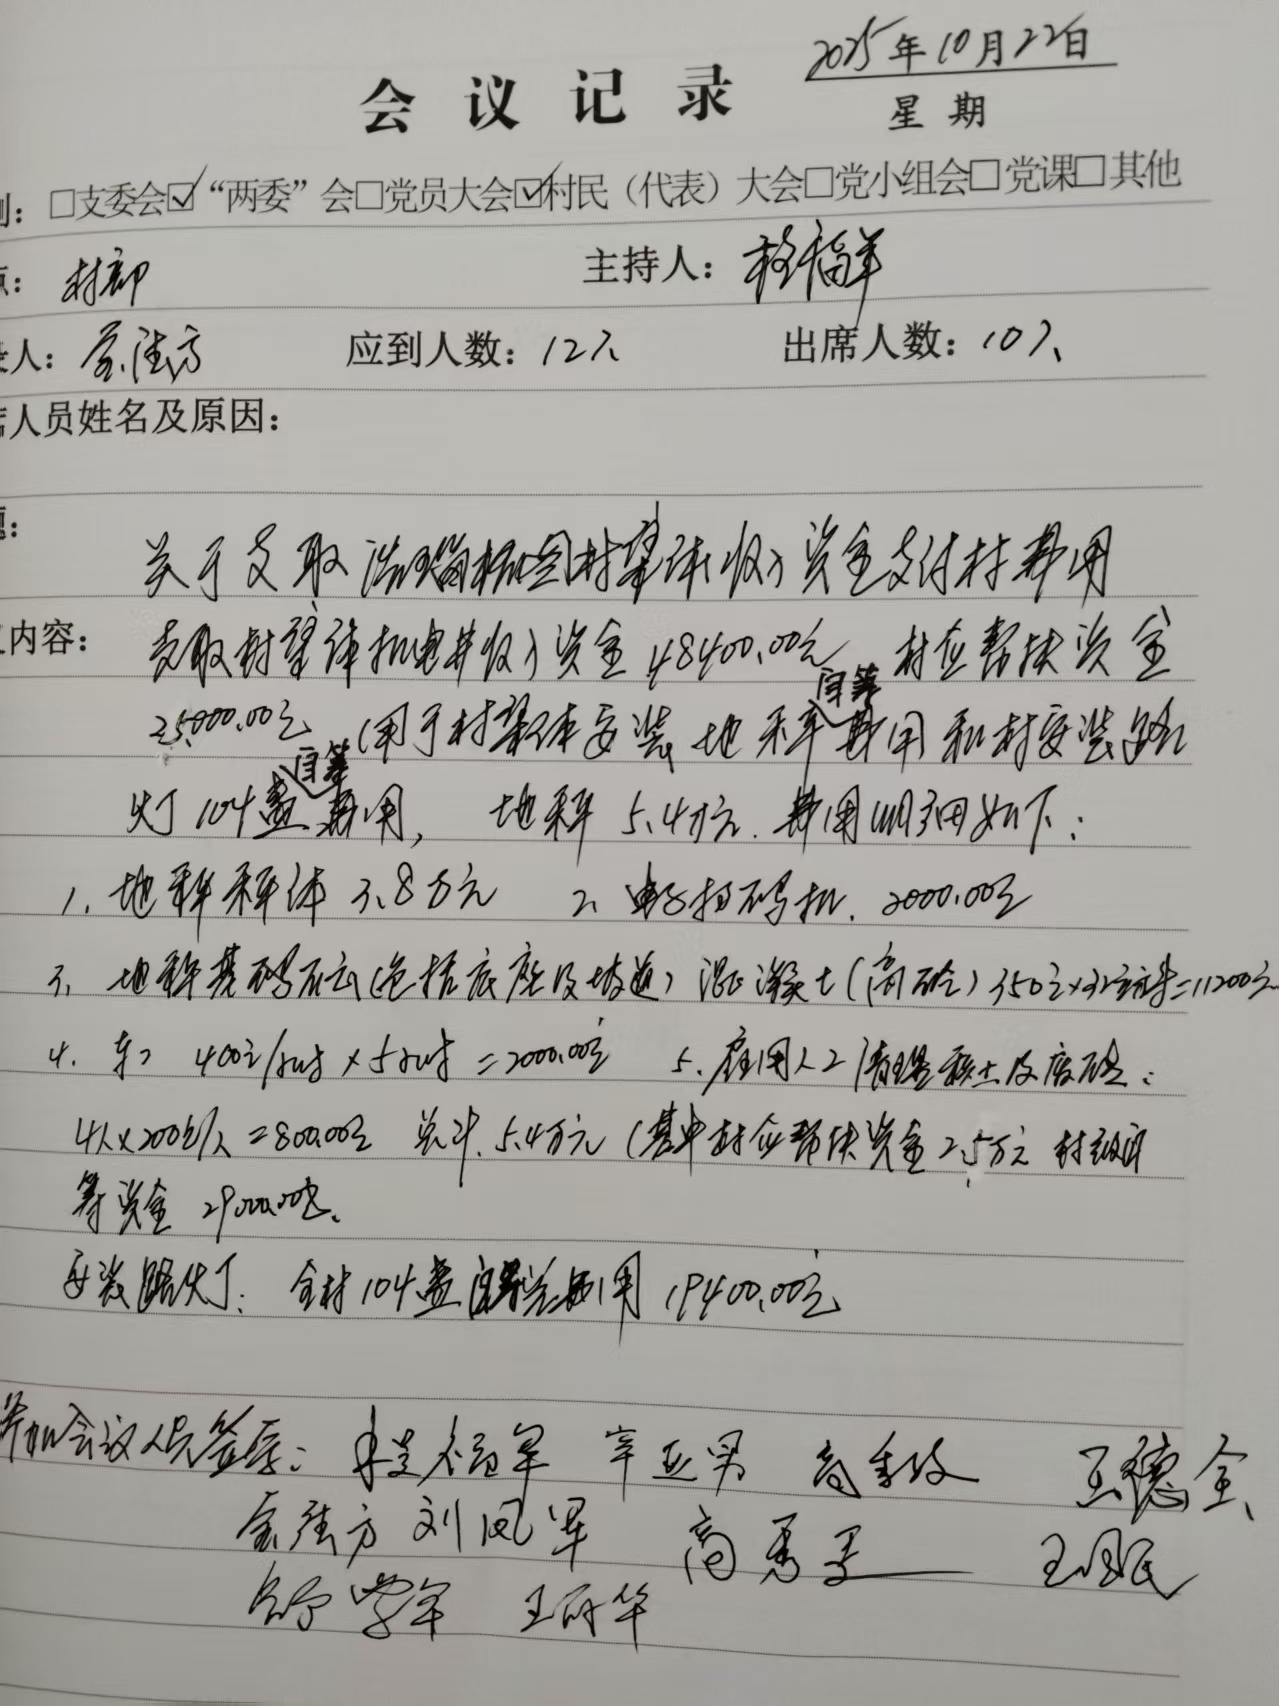 2025年10月22日
会议记录
星期
别：□支委会☑“两委”会□党员大会☑村民（代表）大会□党小组会□党课□其他
点：村部 主持人：程福军
录人：金法方 应到人数：12人 出席人数：10人
席人员姓名及原因：
题：
关于支取 村集体收入资金支付村费用
内容：支取村集体机电井收入资金48400.00元 村应帮扶资金
自筹
25000.00元（用于村集体安装地秤费用和村安装路
自筹
灯104盏费用， 地秤5.4万元.费用明细如下：
1、地秤秤体3.8万元 2、电子扫码机.2000.00元
3、地秤基础（包括底座及坡道）混凝土（商砼）350元×32立方米=11200元
4、车 400元/小时×5小时=2000.00元 5、雇用人工清理积土及底：
4人×200元/人=800.00元 总计.5.4万元（其中村应帮扶资金2.5万元 村级自
筹资金29000.00元.
安装路灯：全村104盏自筹总费用19400.00元
参加会议人员签字：程福军 辛亚男 高 王德全
金法方 刘凤军 高秀 王国民
学军 王 华